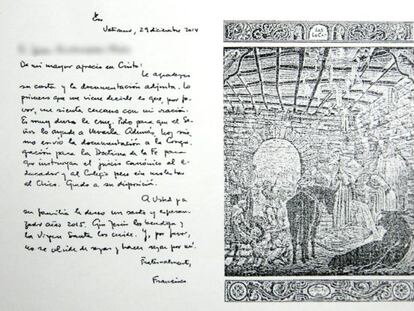 Vaticano, 29 diciembre 2014
De mi mayor aprecio en Cristo:
Le agradezco
su carta y la documentación adjunta. Lo
primero que me viene decirle es que, por fa-
vor, me sienta cercano con mi oración.
Es muy dura la cruz. Pido para que el Se-
ñor lo ayude a llevarla. Además hoy mis-
mo envío la documentación a la Congre-
gación para la Doctrina de la Fe para
que instruyan el juicio canónico al E-
ducador y al Colegio pero sin molestar
al Chico. Quedo a su disposición.
A Usted y a
su familia le deseo un santo y esperan-
zador año 2015. Que Jesús los bendiga y
la Virgen Santa los cuide. Y, por favor,
no se olvide de rezar y hacer rezar por mí.
Fraternalmente,
Francisco